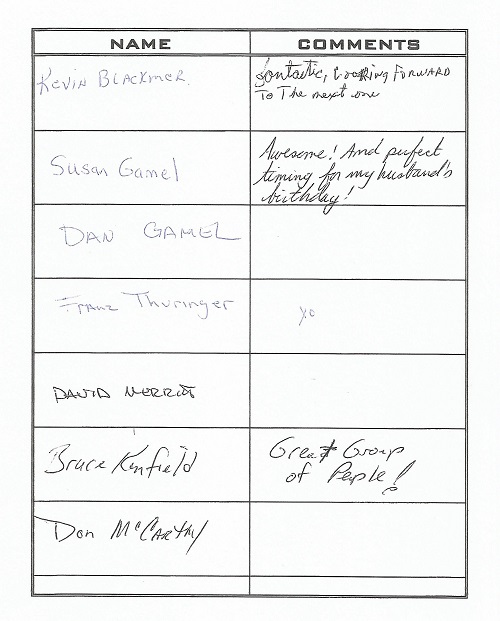 NAME COMMENTS
Kevin Blackmer. fantastic, Looking Forward
To The next one
Susan Gamel Awesome! And perfect
timing for my husband's
birthday!
DAN GAMEL
Franz Thuringer yo
DAVID MERRITT
Bruce Kenfield Great Group
of People!
Don McCarthy